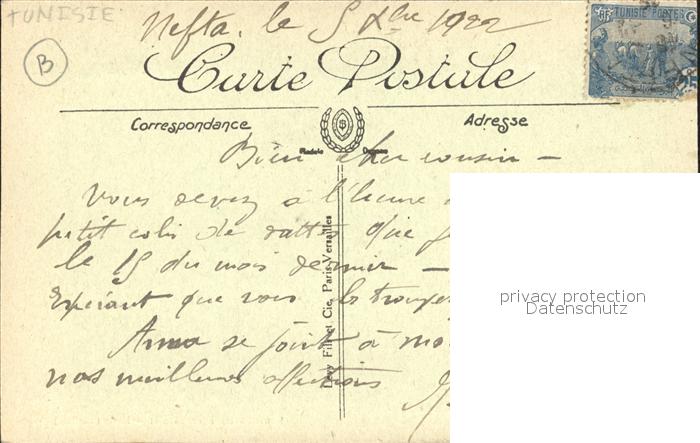 TUNISIE
Nefta, le 5 Xbre 1922
B
RF TUNISIE POSTES
Carte Postale
Correspondance
Adresse
Bien cher cousin —
Vous devez à l'heure
petit colis de dattes que
le 15 du mois dernier —
Espérant que vous les
se joint à
nos meilleures affections
Lévy Fils et Cie, Paris-Versailles
privacy protection
Datenschutz